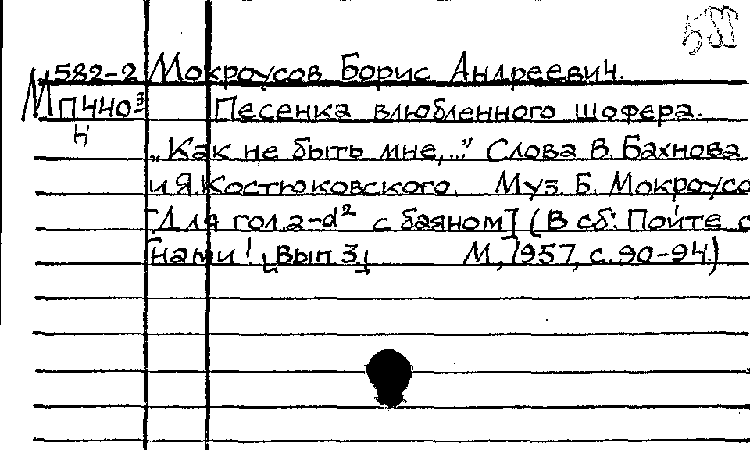 588
М 582-2 Мокроусов Борис Андреевич.
П440³ Песенка влюбленного шофера.
Н
„Как не быть мне,..." Слова В. Бахнова
и Я. Костюковского. Муз. Б. Мокроусо
[Для гол. a-d² с баяном] (В сб: Пойте с
нами! Вып 3. М, 1957, с. 90-94.)